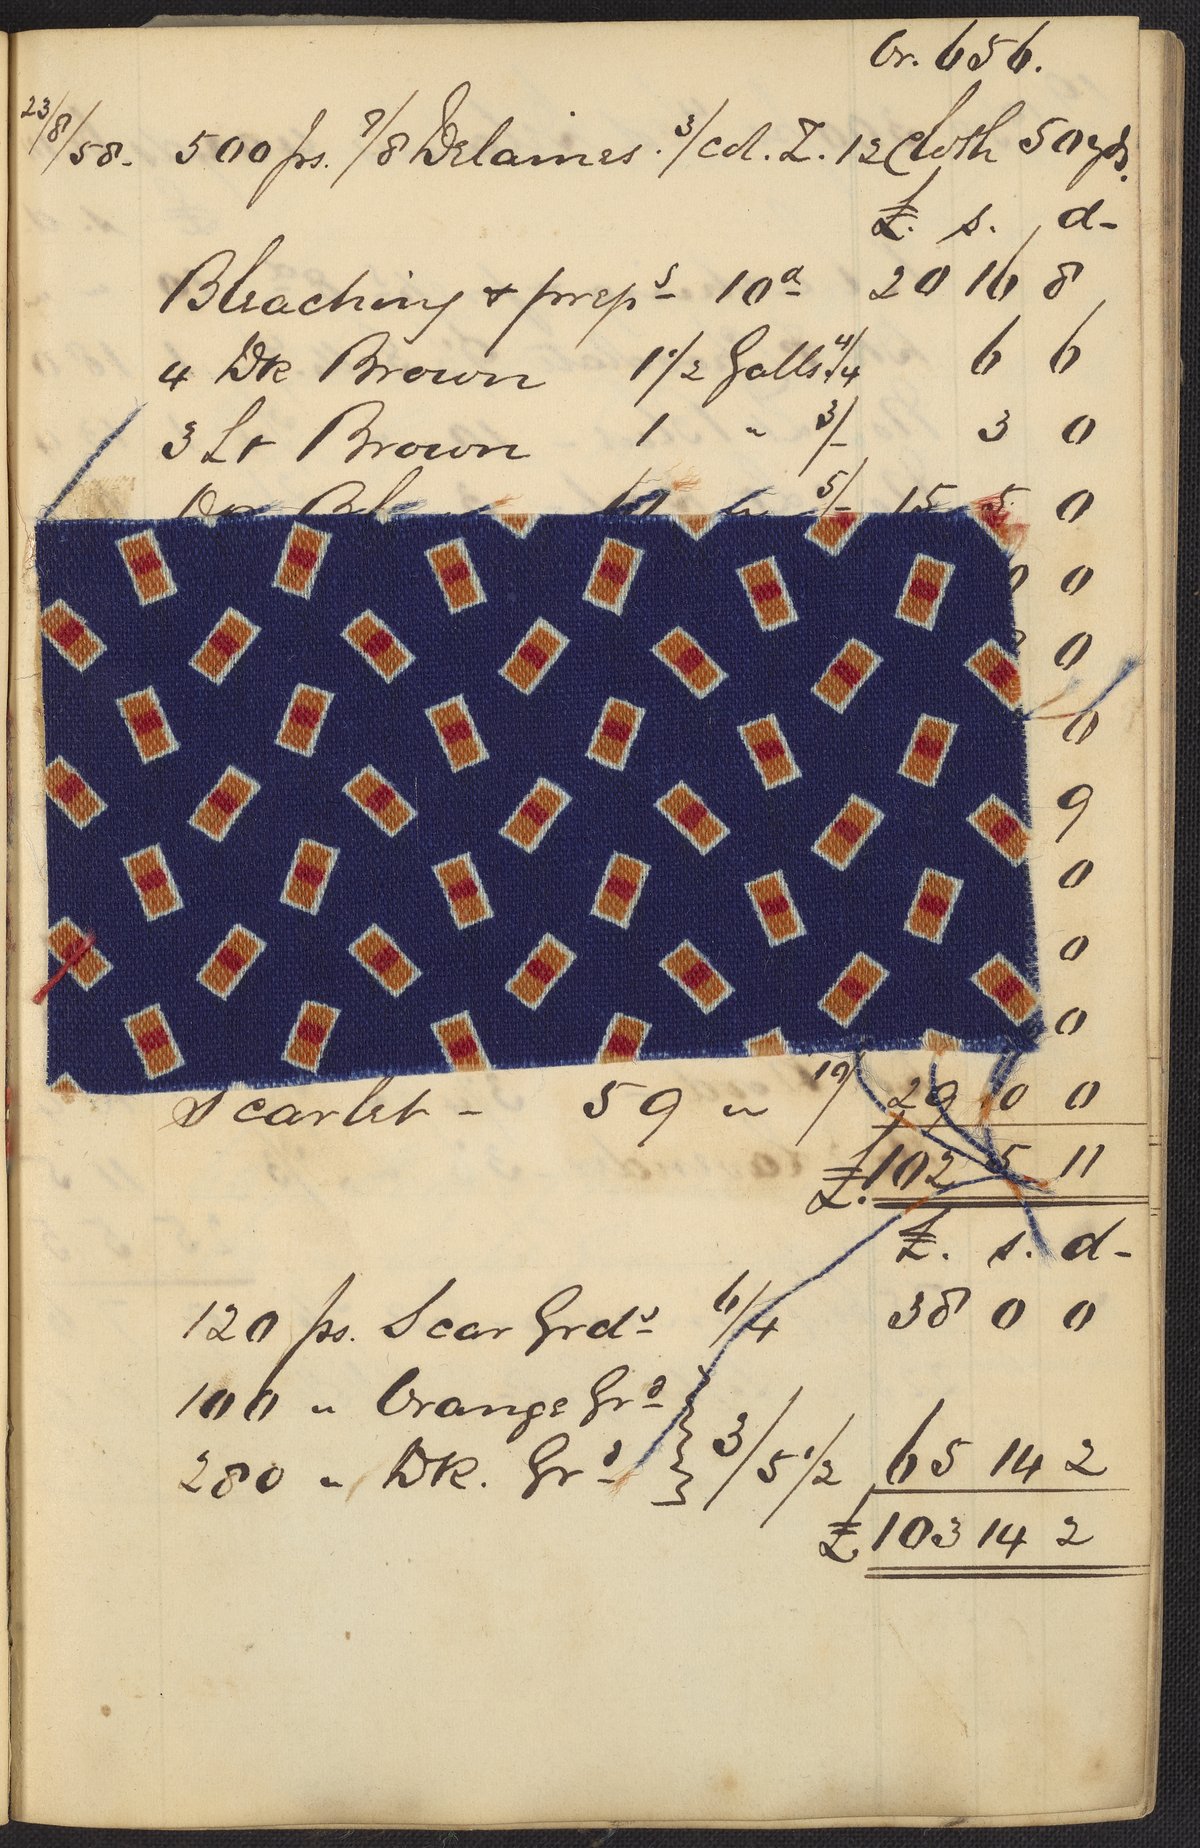 Or. 656.
23/8/58. 500 ps. 7/8 Delaines. 3/col. Z. 12 Cloth 50 yds.
£. s. d-
Bleaching & preps 10d 20 16 8
4 Dk Brown 1 1/2 Galls. 4/4 6 6
3 Lt Brown 1 " 3/- 3 0
5/- 15 5 0
0
0
0
9
0
0
0
Scarlet - 59 " 29 0 0
£. 102 5 11
£. s. d-
120 ps. Scar Grds 6/4 38 0 0
100 " Orange Grd
280 " Dk. Grd } 3/5 1/2 65 14 2
£ 103 14 2